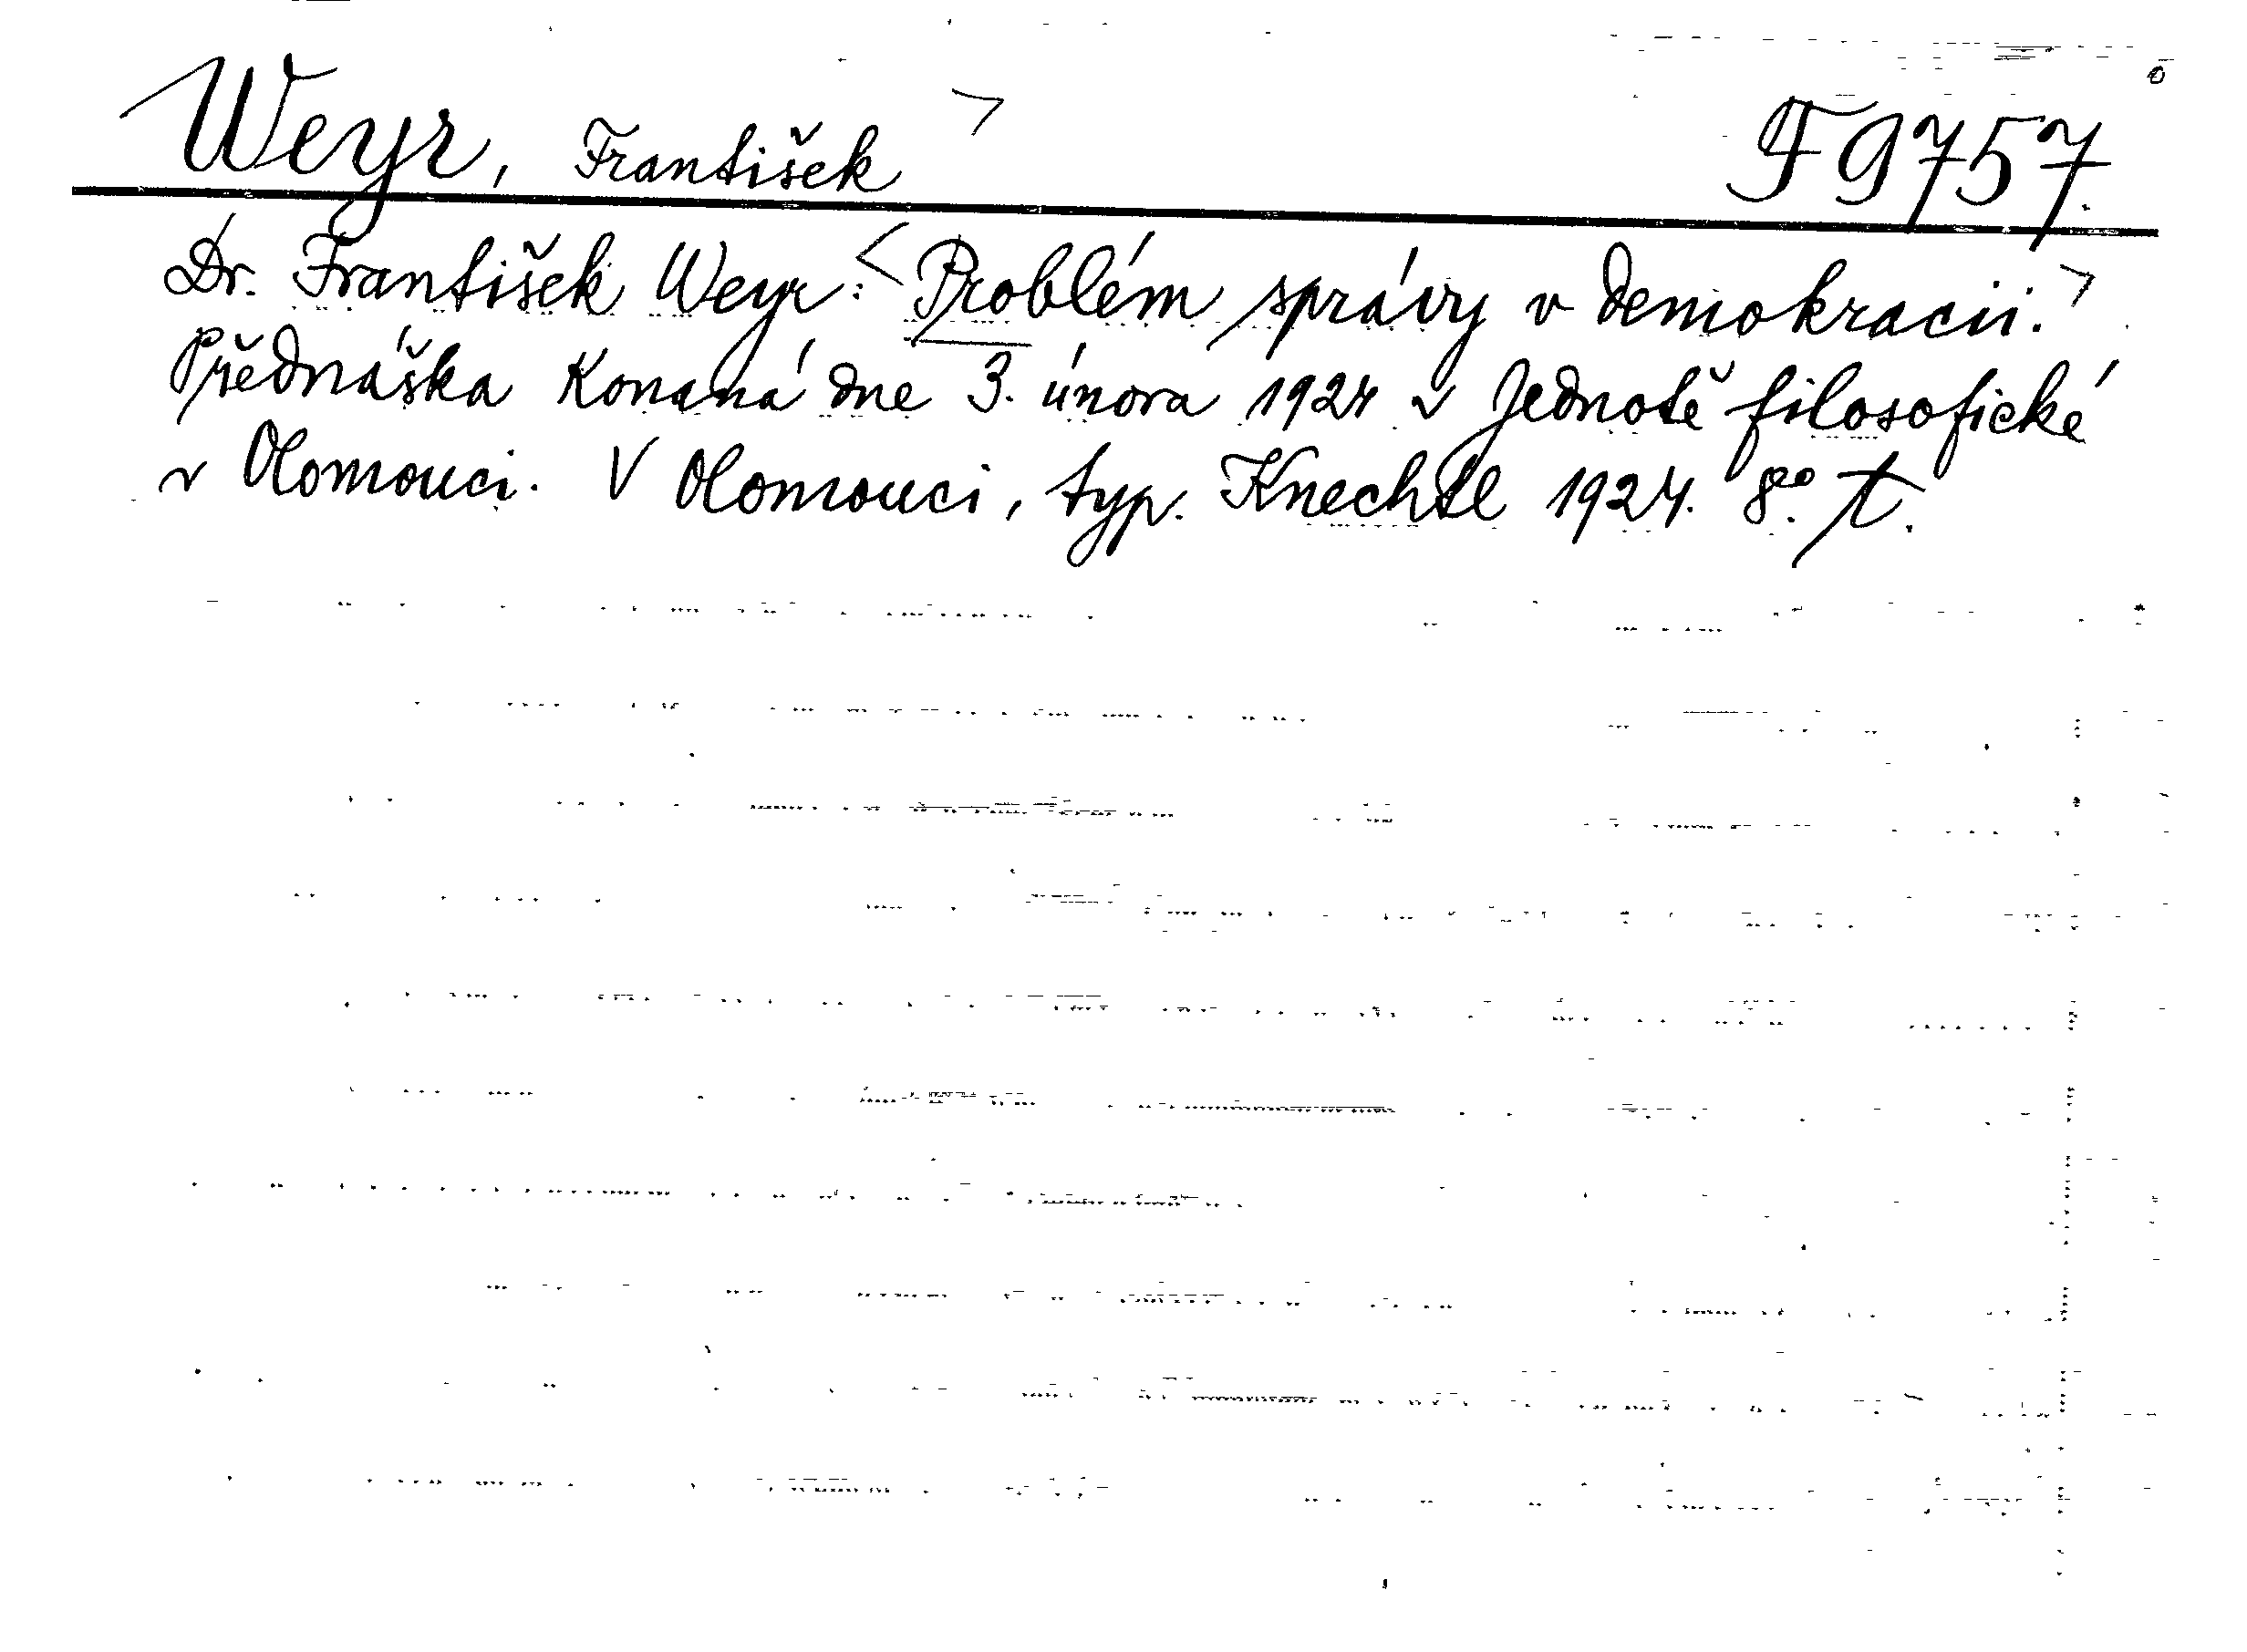 Weyr, František F 9757.
Dr. František Weyr: Problém správy v demokracii.
Přednáška konaná dne 3. února 1924 v Jednotě filosofické
v Olomouci. V Olomouci, typ. Knechtl 1924. 8°.